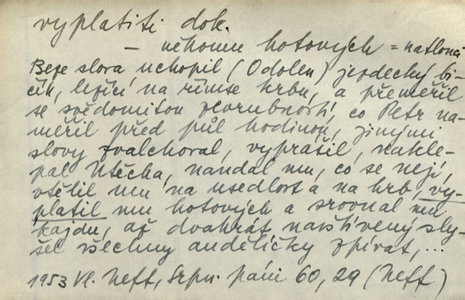 vyplatiti dok.
— někomu hotových = natlouci
Beze slova uchopil (Odolen) jezdecký bi-
čík, ležící na římse krbu, a přeměřil
se svědomitou zevrubností, co Petr na-
měřil před půl hodinou, jinými
slovy zvalchoval, vyprášil, nakle-
pal Utěcha, nandal mu, co se nejí,
vtělil mu na usedlost a na hrb, vy-
platil mu hotových a srovnal mu
kajdu, až dvakrát navštívený sly-
šel všechny andělíčky zpívat, ...
1953 Vl. Neff, Srpn. páni 60, 29 (Neff)